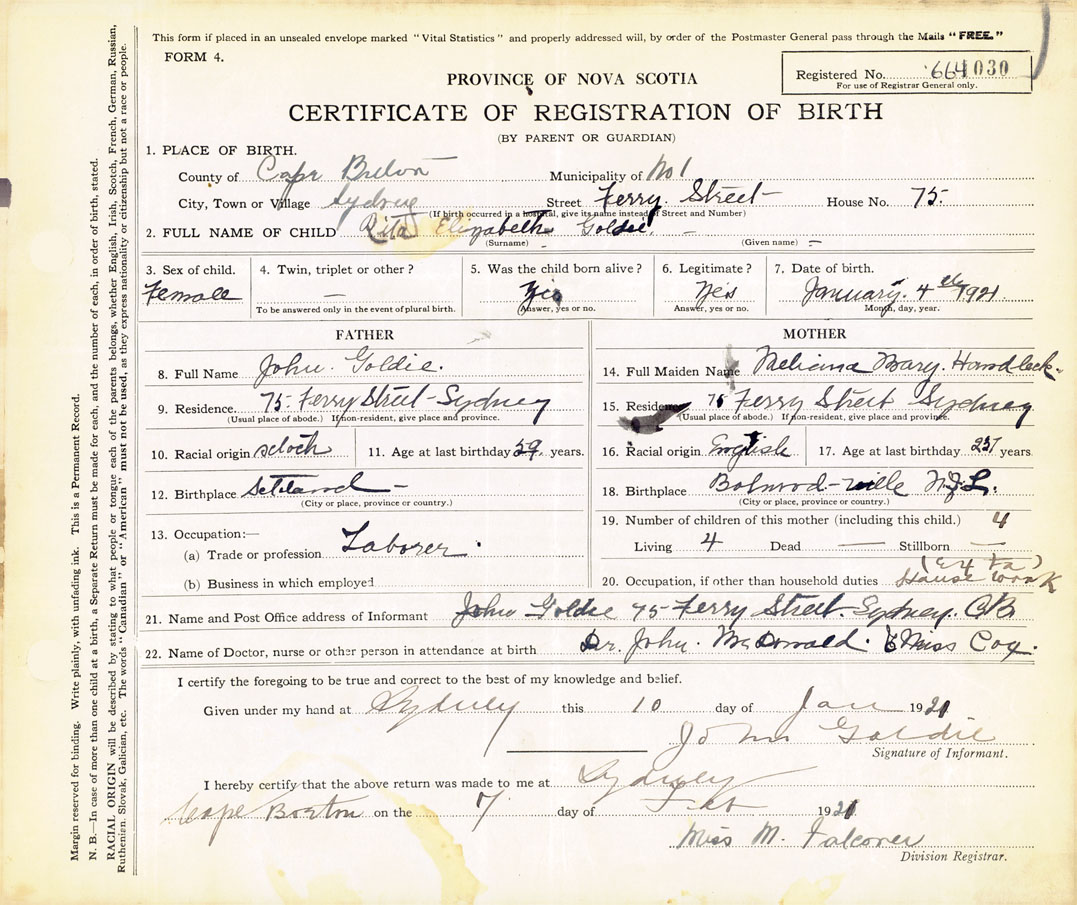 This form if placed in an unsealed envelope marked "Vital Statistics" and properly addressed will, by order of the Postmaster General pass through the Mails "FREE."
FORM 4.
Registered No. 664030
For use of Registrar General only.
PROVINCE OF NOVA SCOTIA
CERTIFICATE OF REGISTRATION OF BIRTH
(BY PARENT OR GUARDIAN)
1. PLACE OF BIRTH.
County of Cape Breton Municipality of No 1
City, Town or Village Sydney Street Ferry Street House No. 75.
(If birth occurred in a hospital, give its name instead of Street and Number)
2. FULL NAME OF CHILD Rita Elizabeth Goldie.
(Surname) (Given name)
3. Sex of child. 4. Twin, triplet or other? 5. Was the child born alive? 6. Legitimate? 7. Date of birth.
Female — Yes Yes January. 4th 1921
To be answered only in the event of plural birth. Answer, yes or no. Answer, yes or no. Month, day, year.
FATHER
8. Full Name John. Goldie.
9. Residence. 75 Ferry Street - Sydney
(Usual place of abode.) If non-resident, give place and province.
10. Racial origin scotch 11. Age at last birthday 29. years.
12. Birthplace
(City or place, province or country.)
13. Occupation:—
(a) Trade or profession Laborer.
(b) Business in which employed
MOTHER
14. Full Maiden Name Mary.
15. Residence 75 Ferry Street Sydney
(Usual place of abode.) If non-resident, give place and province.
16. Racial origin English 17. Age at last birthday years
18. Birthplace
(City or place, province or country.)
19. Number of children of this mother (including this child.) 4
Living 4 Dead — Stillborn —
20. Occupation, if other than household duties House work
21. Name and Post Office address of Informant John Goldie 75 Ferry Street. Sydney. CB
22. Name of Doctor, nurse or other person in attendance at birth Dr. John. McDonald. & Miss Cox.
I certify the foregoing to be true and correct to the best of my knowledge and belief.
Given under my hand at Sydney this 10 day of Jan 1921
John Goldie
Signature of Informant.
I hereby certify that the above return was made to me at Sydney
Cape on the 7 day of Feb 1921
Miss M. Falconer
Division Registrar.
Margin reserved for binding. Write plainly, with unfading ink. This is a Permanent Record.
N. B.—In case of more than one child at a birth, a Separate Return must be made for each, and the number of each, in order of birth, stated.
RACIAL ORIGIN will be described by stating to what people or tongue each of the parents belongs, whether English, Irish, Scotch, French, German, Russian,
Ruthenian, Slovak, Galician, etc. The words "Canadian" or "American" must not be used, as they express nationality or citizenship but not a race or people.